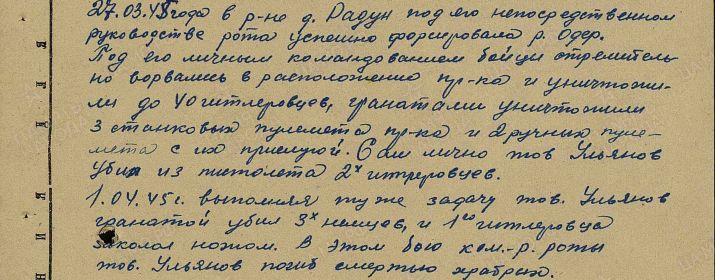 27.03.45 года в р-не д. Радун под его непосредственном
руководстве рота успешно форсировала р. Одер.
Под его личным командованием бойцы стремитель-
но ворвались в расположение пр-ка и уничтожи-
ли до 40 гитлеровцев, гранатами уничтожили
3 станковых пулемета пр-ка и 2 ручных пуле-
мета с их прислугой. Сам лично тов Ульянов
убил из пистолета 2х гитлеровцев.
1.04.45 г. выполняя ту же задачу тов. Ульянов
гранатой убил 3х немцев, и 1го гитлеровца
заколол ножом. В этом бою ком-р. роты
тов. Ульянов погиб смертью храбрых.